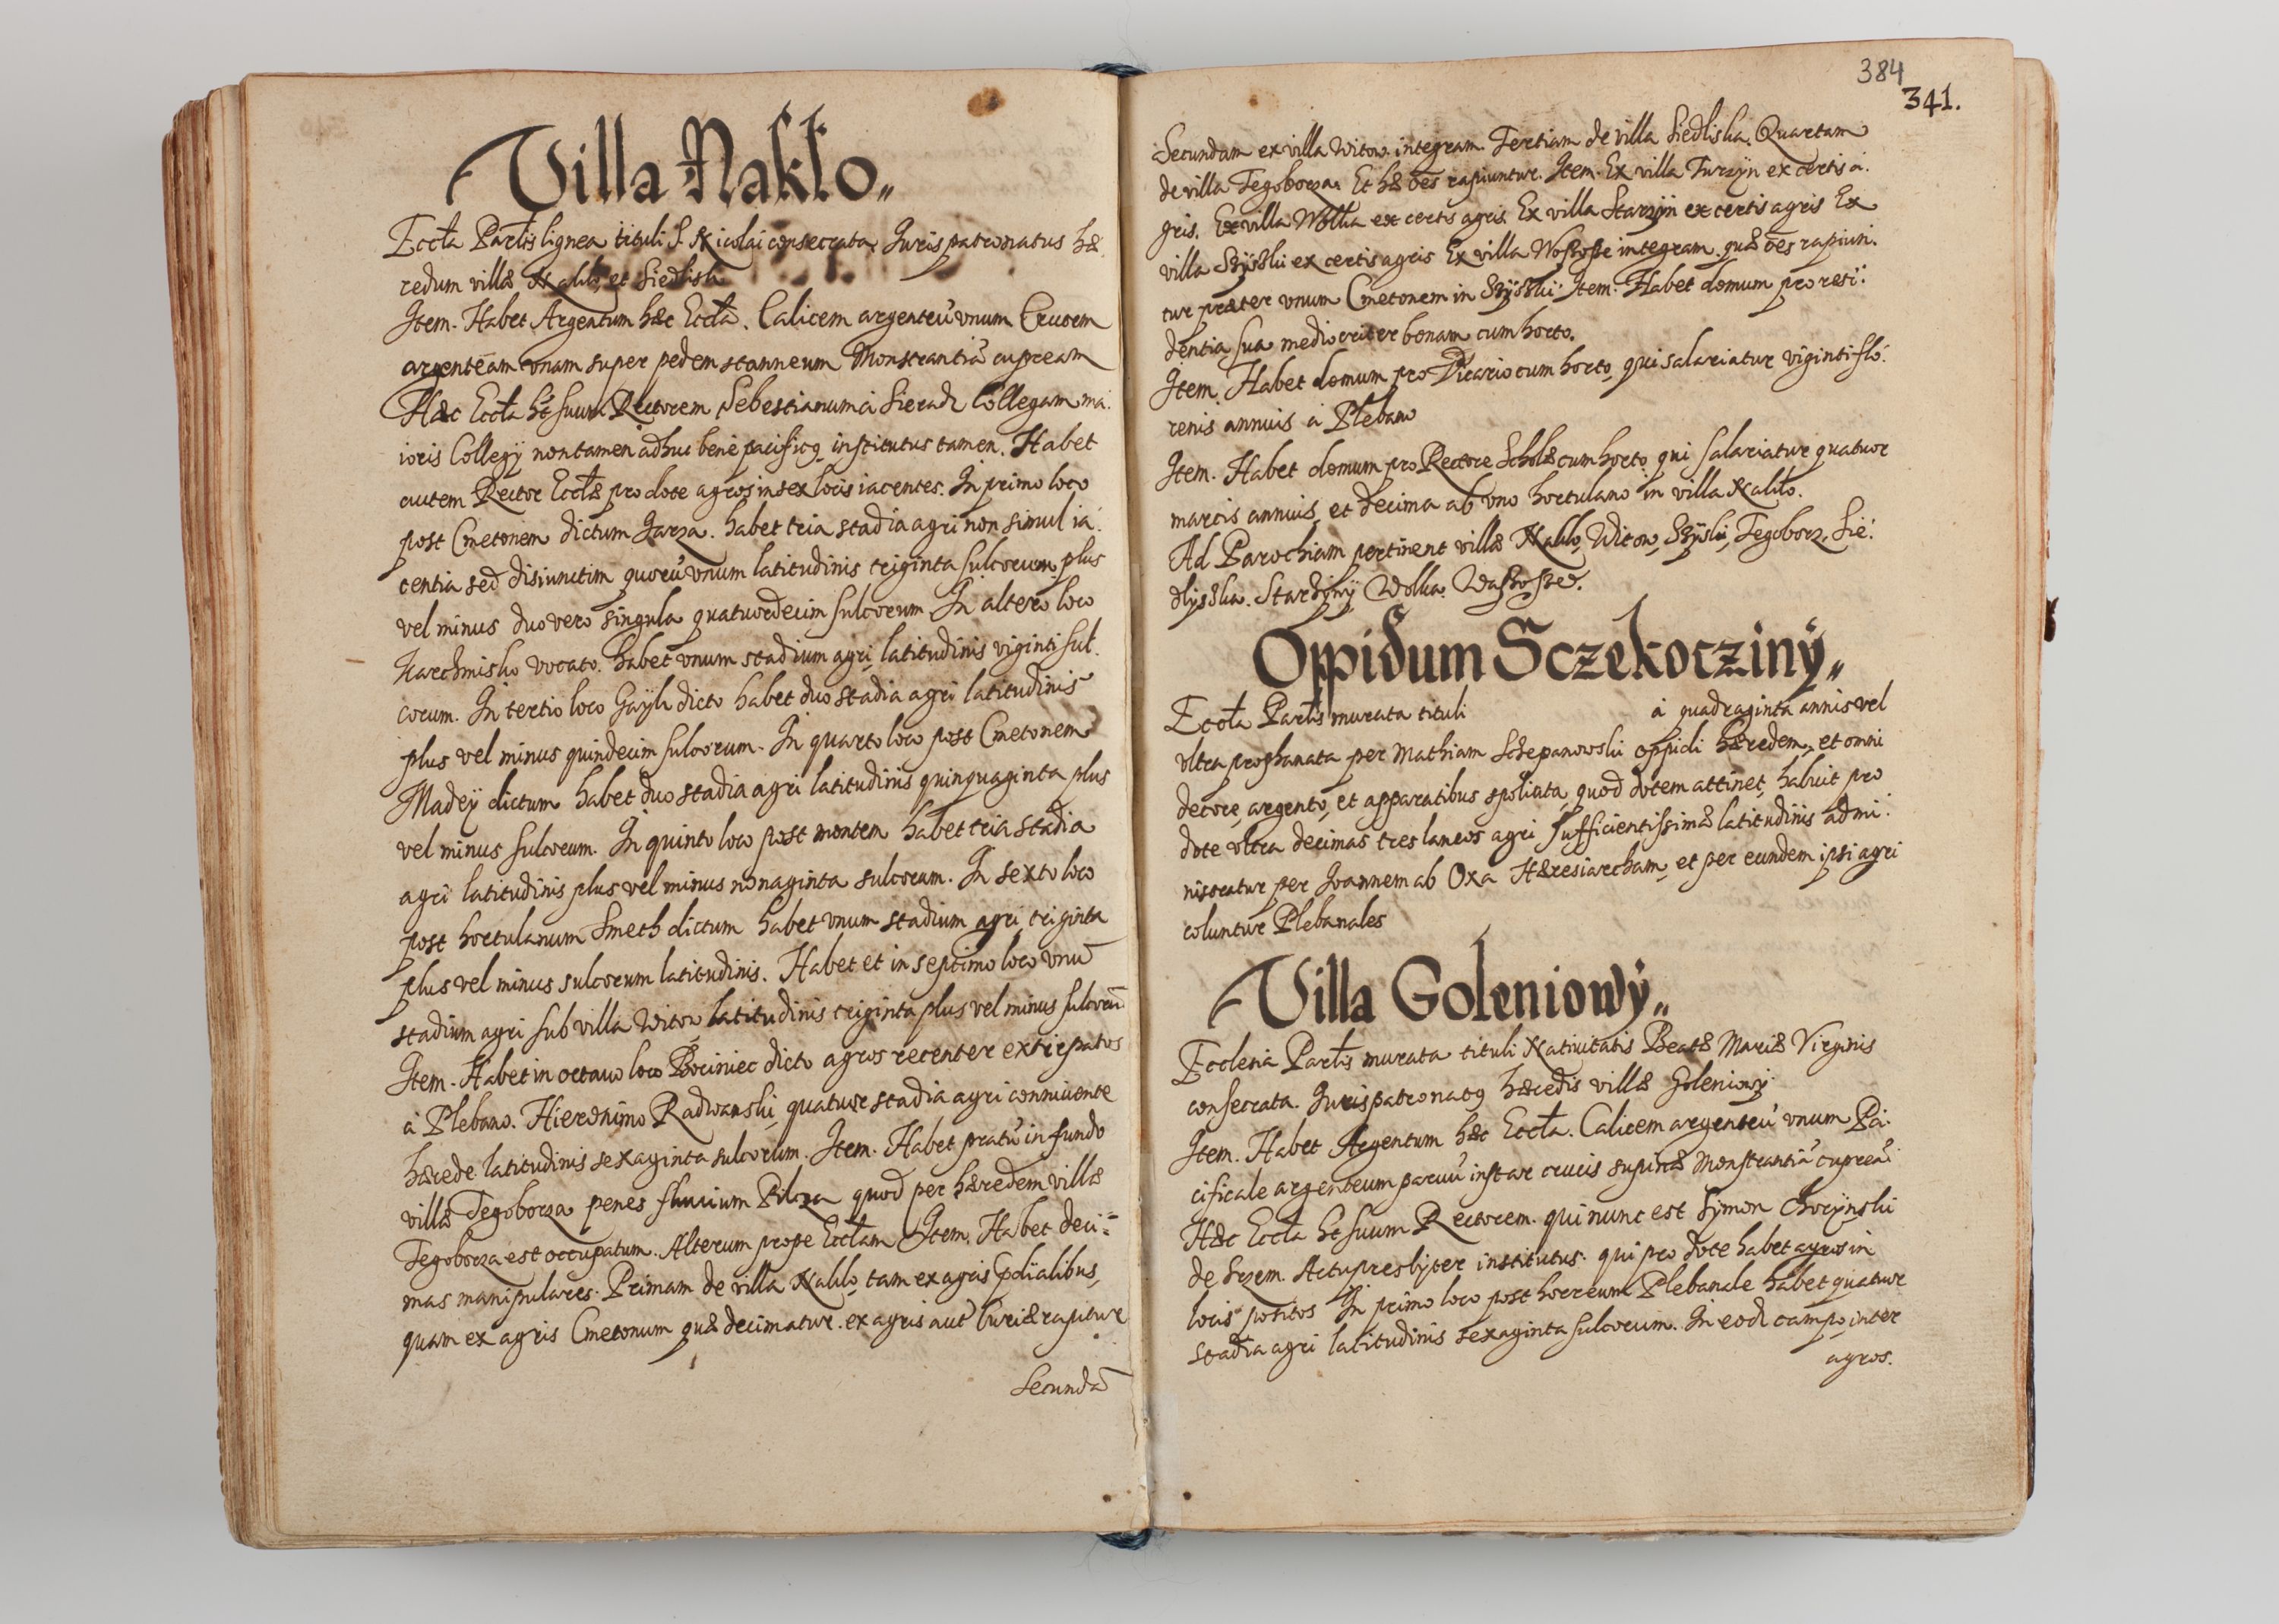 Villa Nakło„
Eccl̃a Par̃lis lignea tituli S. Nicolai consecrata. Iuris patronatus hæ
redum villæ Naklo, et Siedlisk
Item. Habet Argentum hæc Eccl̃a. Calicem argenteũ vnum Crucem
argenteam vnam super pedem stanneum Monstrantiã cupream
Hæc Eccl̃a h̃t suum Rectorem Sebestianum à Sieradz Collegam ma:
ioris Collegÿ non tamen adhuc bene pacificq, institutus tamen. Habet
autem Rector Eccl̃æ pro dote agros in sex locis iacentes. In primo loco
post Cmetonem dictum Jarza. habet tria stadia agri non simul ia:
centia sed disiunctim quorũ vnum latitudinis triginta sulcorum plus
vel minus duo vero singula quatuordecim sulcorum In altero loco
Karchmisko vocato. habet vnum stadium agri latitudinis viginti sul.
corum. In tertio loco Gayk dicto habet duo stadia agri latitudinis
plus vel minus quindecim sulcorum. In quarto loco post Cmetonem
Madeÿ dictum habet duo stadia agri latitudinis quinquaginta plus
vel minus sulcorum. In quinto loco post montem habet tria stadia
agri latitudinis plus vel minus nonaginta sulcorum. In sexto loco
post hortulanum Smeth dictum habet vnum stadium agri triginta
plus vel minus sulcorum latitudinis. Habet et in septimo loco vnũ
stadium agri sub villa Witow latitudinis triginta plus vel minus sulcorũ
Item. Habet in octauo loco Pociniec dicto agros recenter extirpatos
à Plebano. Hieronimo Radwanski, quatuor stadia agri conniuente
hærede latitudinis sexaginta sulcorum. Item. Habet pratũ in fundo
villæ Tegoborza penes fluuium Pilza quod per hæredem villæ
Tegoborza est occupatum. Alterum prope Eccl̃am Item. Habet deci=
mas manipulares. Primam de villa Naklo, tam ex agris p̃dialibus,
quam ex agris Cmetonum quæ decimatur. ex agris aut̃ Curiæ rapitur
Secundã
384
341.
Secundam ex villa Witow. integram. Tertiam de villa Siedliska. Quartam
de villa Tegoborza. Et hæ ões rapiuntur. Item. Ex villa Turzÿn ex certis a.
gris. Ex villa Wolka ex certis agris. Ex villa Starzÿn ex certis agris Ex
villa Szÿskii ex certis agris Ex villa Wossosse integram. quæ ões rapiun.
tur præter vnum Cmetonem in Szÿskii Item. Habet domum pro resi:
dentia sua mediocriter bonam cum horto.
Item. Habet domum pro Vicario cum horto, qui salariatur viginti flo:
renis annuis à Plebano
Item. Habet domum pro Rectore Scholæ cum horto, qui salariatur quatuor
marcis annuis, et decima ab vno hortulano in villa Naklo.
Ad Parochiam pertinent villæ Naklo, Witow, Szÿski, Tegoborz, Sie:
dlyska. Starziny Wolka.
Oppidum Sczekocziny„
Eccl̃a Par̃lis murata tituli à quadraginta annis vel
vltra prophanata per Mathiam Sczepanowski oppidi hæredem, et omni
decore, argento, et apparatibus spoliata, quod dotem attinet, habuit pro
dote vltra decimas tres laneos agri sufficientissimæ latitudinis admi:
nistratur per Joannem ab Oxa Hæresiarcham, et per eundem ipsi agri
coluntur Plebanales
Villa Goleniowÿ„
Ecclesia Par̃lis murata tituli Natiuitatis Beatæ Mariæ Virginis
consecrata. Iurispatronatq hæredis villæ Goleniowÿ.
Item. Habet Argentum hæc Eccl̃a. Calicem argenteũ vnum Pa:
cificale argenteum paruũ instar crucis Monstrantiã cupreã
Hæc Eccl̃a h̃t suum Rectorem. qui nunc est Symon Chocÿnski
de Srzem. Actu presbyter institutus. qui pro dote habet agros in
locis positos In primo loco post horreum Plebanale habet quatuor
stadia agri latitudinis sexaginta sulcorum. In eod̃ campo, inter
agros.